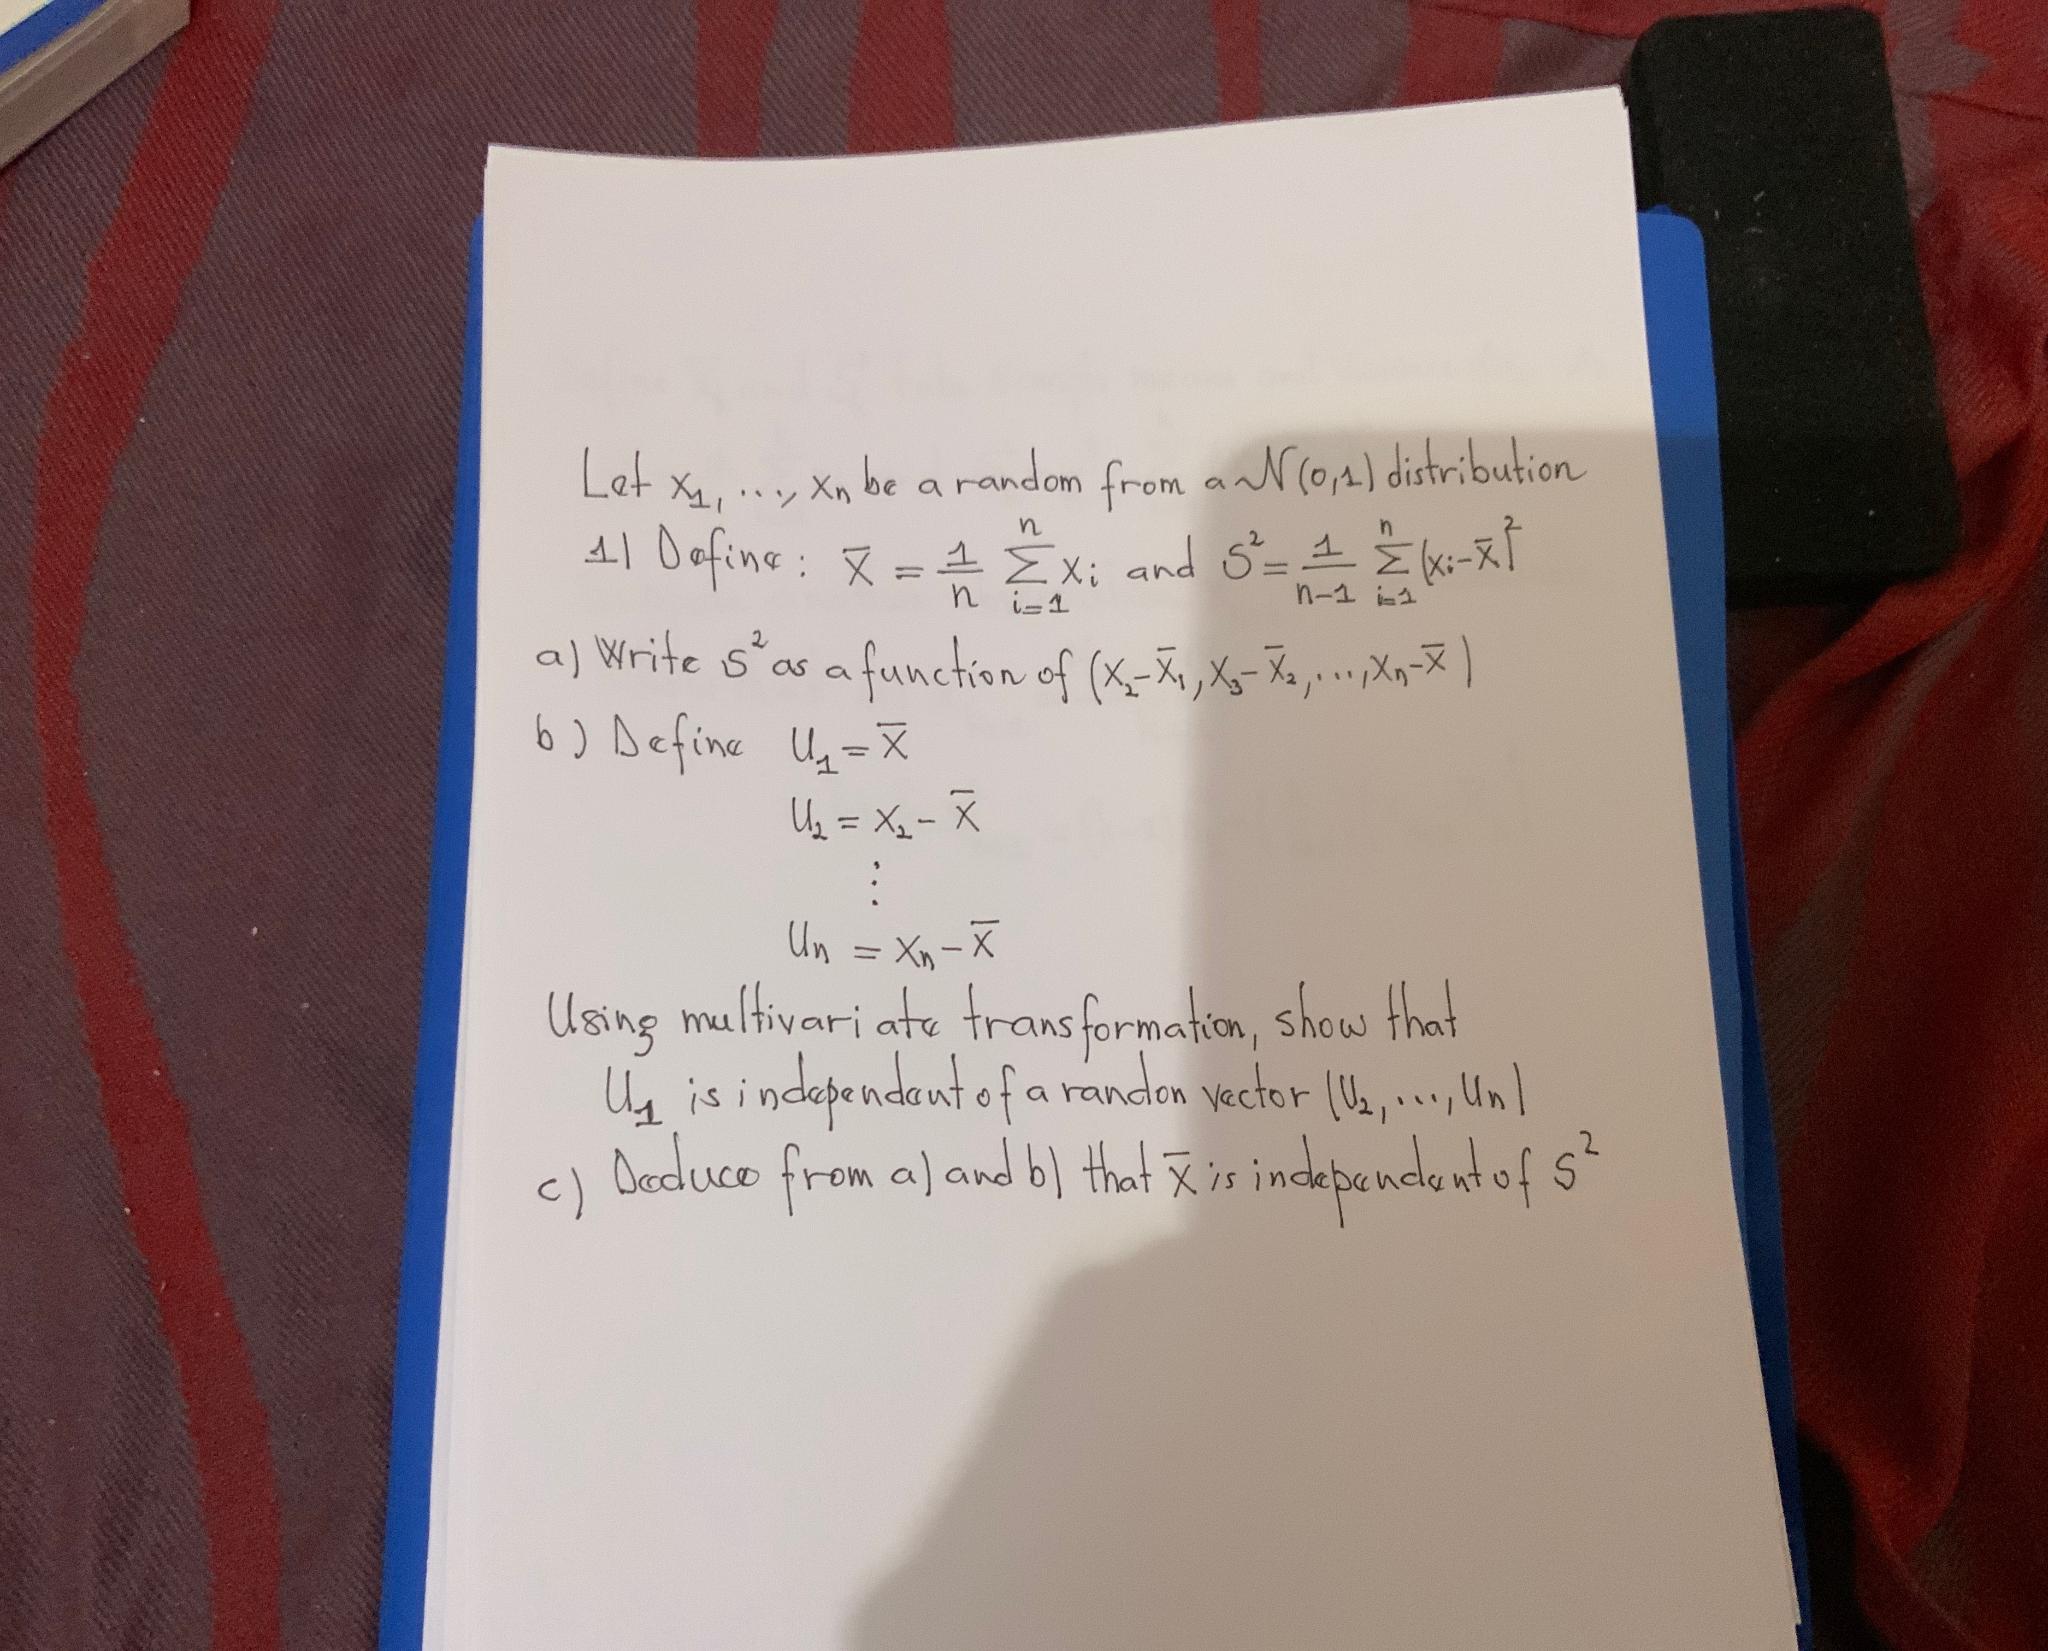 Let x₁, ..., xn be a random from a N(0,1) distribution
1) Define: x̄ = 1/n Σᵢ₌₁ⁿ xᵢ and S² = 1/(n-1) Σᵢ₌₁ⁿ (xᵢ-x̄)²
a) Write s² as a function of (X₂-X̄₁, X₃-X̄₂, ..., Xn-X̄)
b) Define U₁ = X̄
U₂ = X₂ - X̄
⋮
Un = Xn - X̄
Using multivariate transformation, show that
U₁ is independent of a randon vector (U₂, ..., Un)
c) Deduce from a) and b) that X̄ is independent of S²